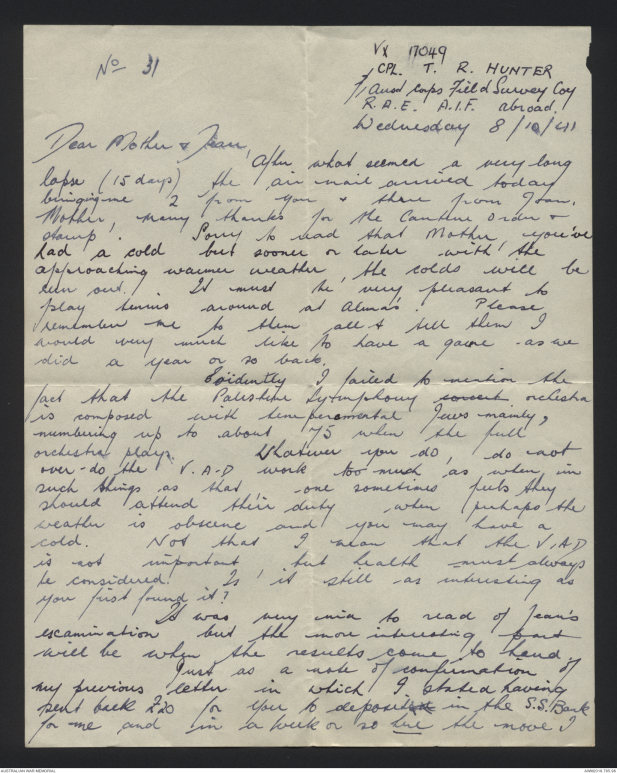 No 31
VX 17049
CPL. T. R. HUNTER
Aust Corps Field Survey Coy
R.A.E. A.I.F. abroad.
Wednesday 8/10/41
Dear Mother & Jean,
After what seemed a very long
lapse (15 days) the air mail arrived today
bringing me 2 from you & three from Joan.
Mother, many thanks for the Canteen Order &
stamp. Sorry to read that Mother, you've
had a cold but sooner or later with the
approaching warmer weather, the colds will be
run out. It must be very pleasant to
play tennis around at Alma's. Please
remember me to them all & tell them I
would very much like to have a game - as we
did a year or so back.
Evidently I failed to mention the
fact that the Palestine Symphony concert orchestra
is composed with temperemental Jews mainly,
numbering up to about 75 when the full
orchestra plays. Whatever you do, do not
over-do the V.A.D work too much as when, in
such things as that - one sometimes feels they
should attend their duty when perhaps the
weather is obscene and you may have a
cold. Not that I mean that the V.A.D
is not important, but health must always
be considered. Is it still as interesting as
you first found it?
It was very nice to read of Jean's
examination but the more interesting part
will be when the results come to hand.
Just as a note of confirmation of
my previous letter in which I stated having
sent back £20 for you to deposit in the S.S. Bank
for me and in a week or so the move I
AUSTRALIAN WAR MEMORIAL